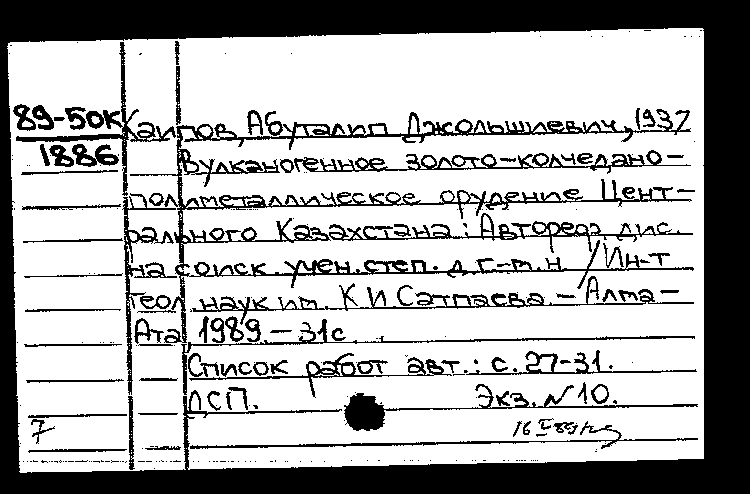 89-50К Каипов, Абуталип Джольшиевич, 1937
1886 Вулканогенное золото-колчедано-
полиметаллическое орудение Цент-
рального Казахстана: Автореф дис.
на соиск. учен. степ. д. г.-м. н / Ин-т
геол. наук им. К И Сатпаева. - Алма-
Ата, 1989. - 31с.
Список работ авт.: с. 27-31.
ДСП. Экз. N 10.
7 16 V 89